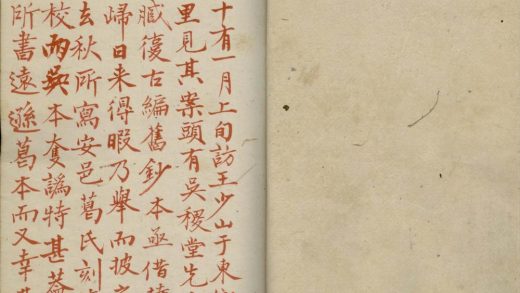 十有一月上旬訪王少山于東
里見其案頭有吳稷堂先
臧復古編舊鈔本亟借
歸日来得暇乃舉而披
去秋所寫安邑葛氏刻
校兩吳本夐譌特甚葢
所書遠遜葛本而又幸